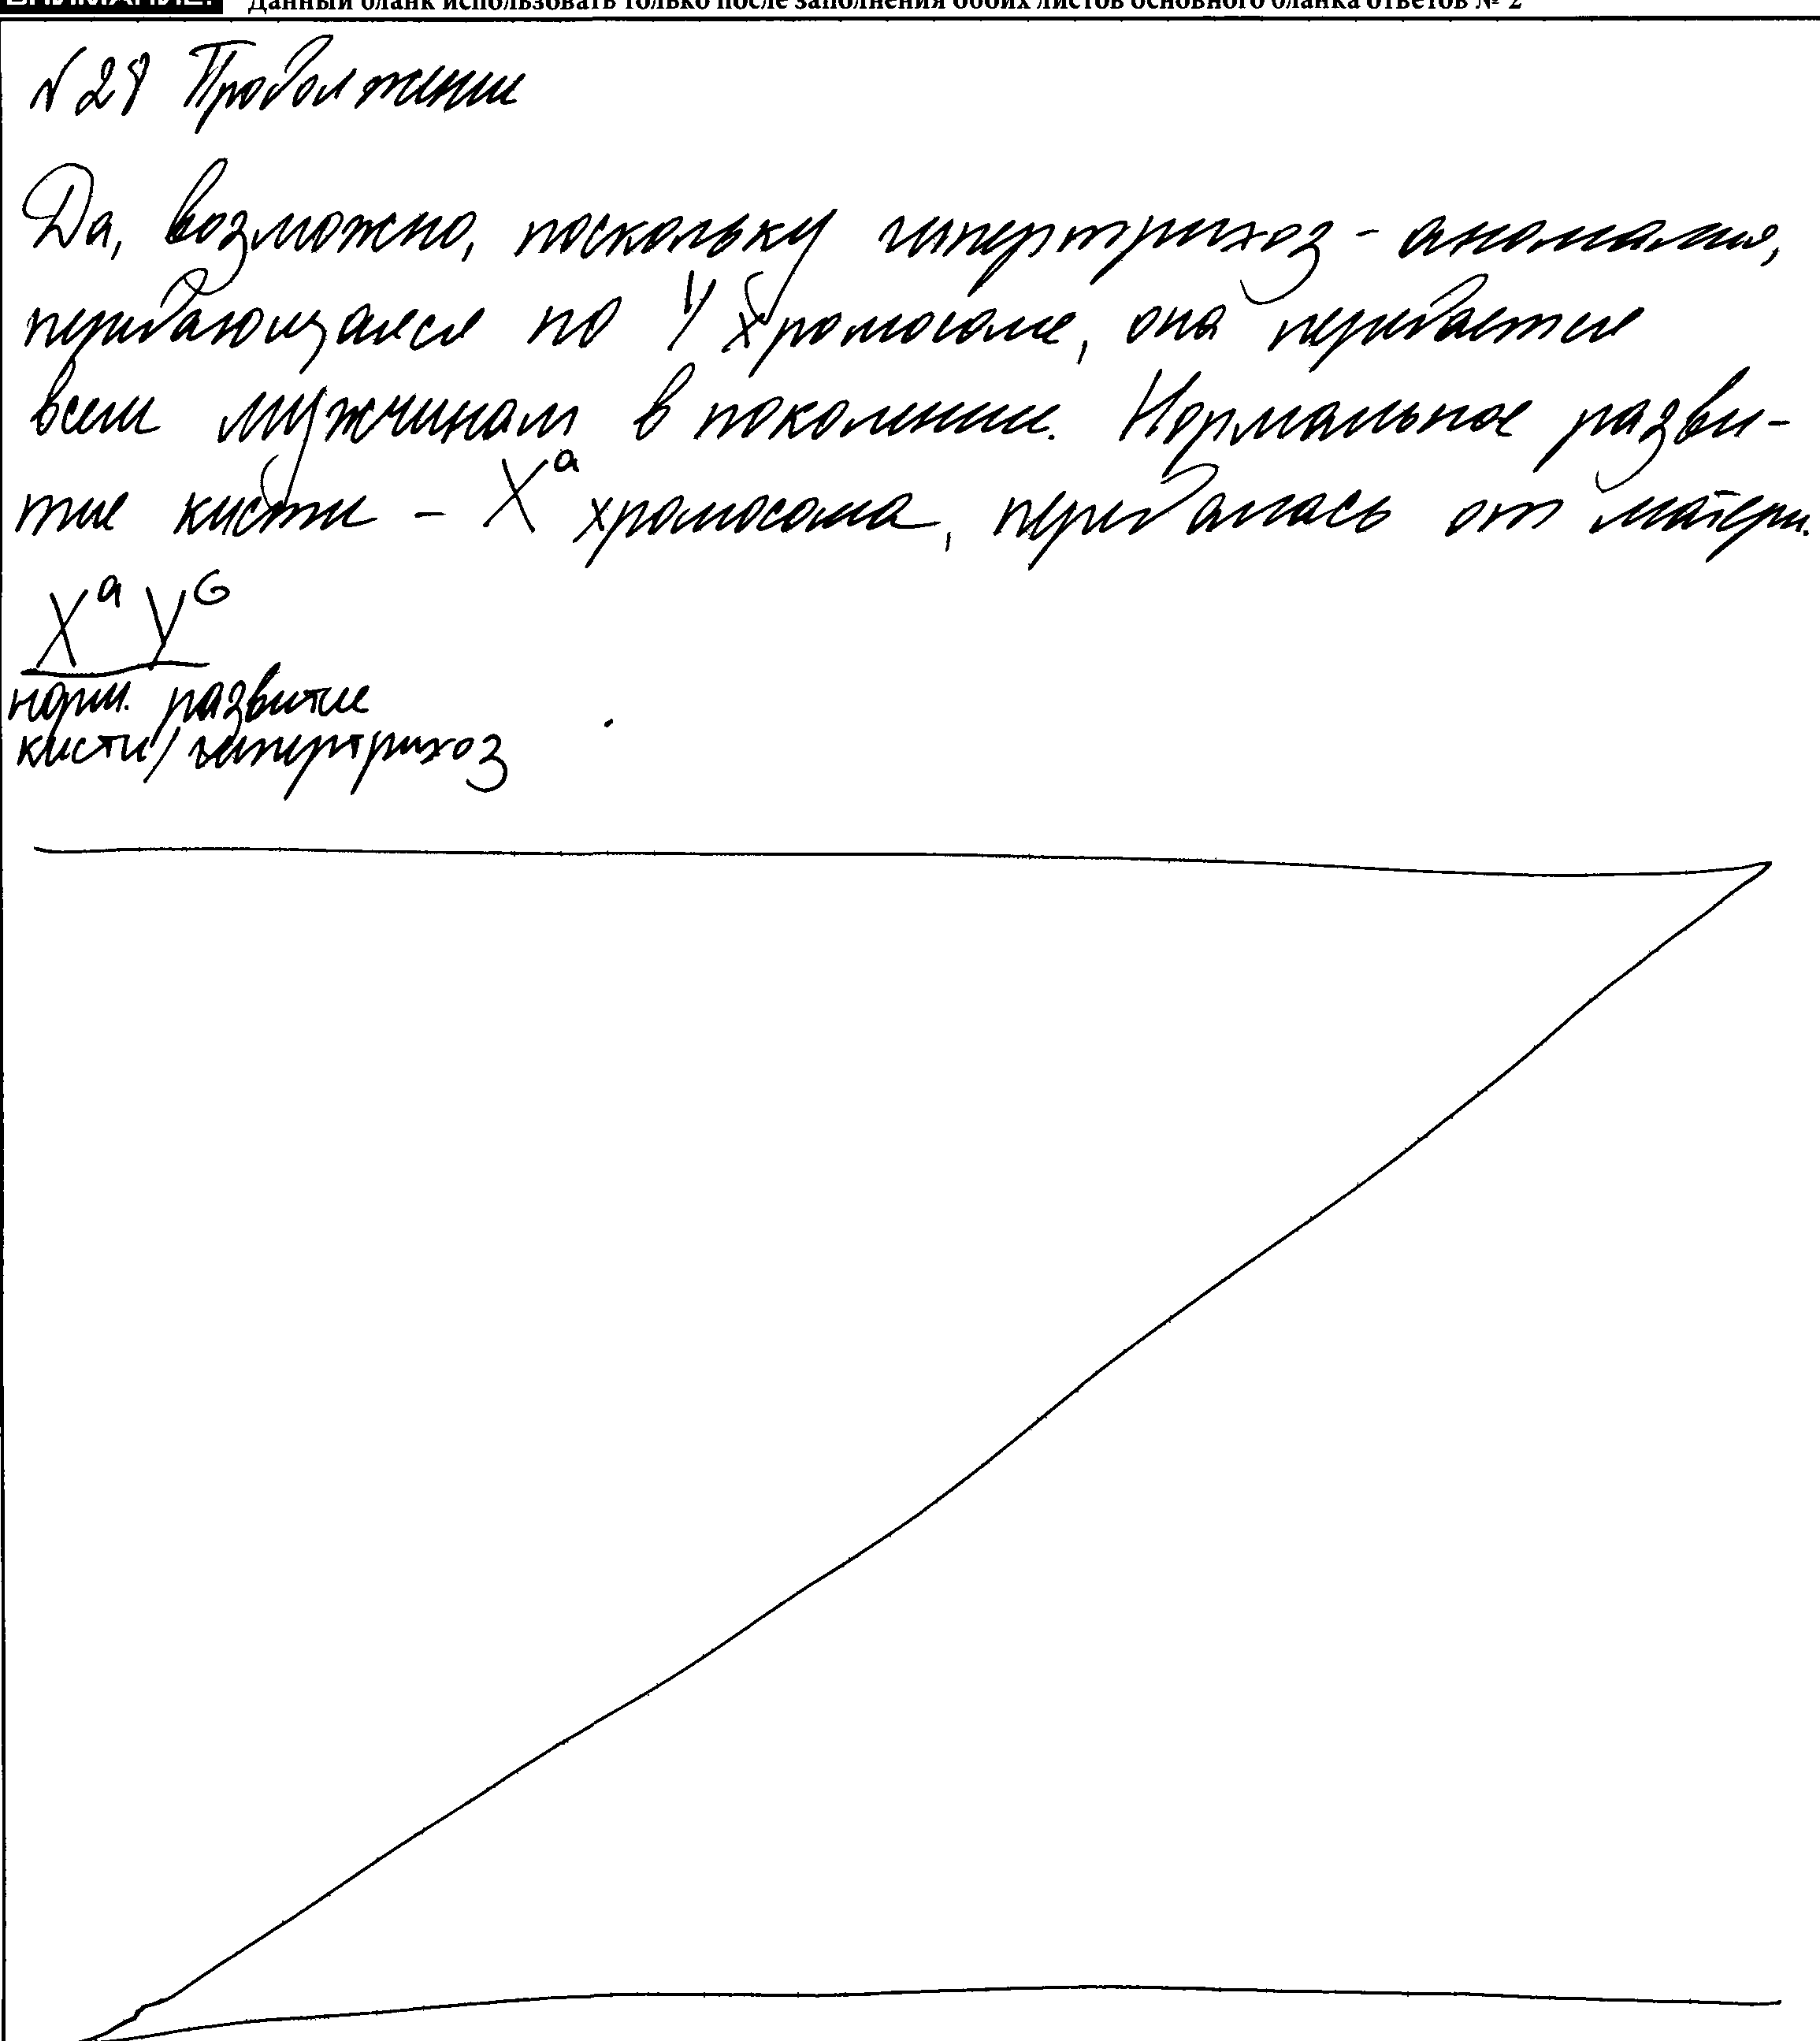 ВНИМАНИЕ! Данный бланк использовать только после заполнения обоих листов основного бланка ответов № 2
№ 28 Продолжение
Да, возможно, поскольку гипертрихоз - аномалия,
передающаяся по Y хромосоме, она передается
всем мужчинам в поколении. Нормальное разви-
тие кисти - Xᵃ хромосома, передалась от матери.
Xᵃ Yᴳ
норм. развитие
кисти/гипертрихоз